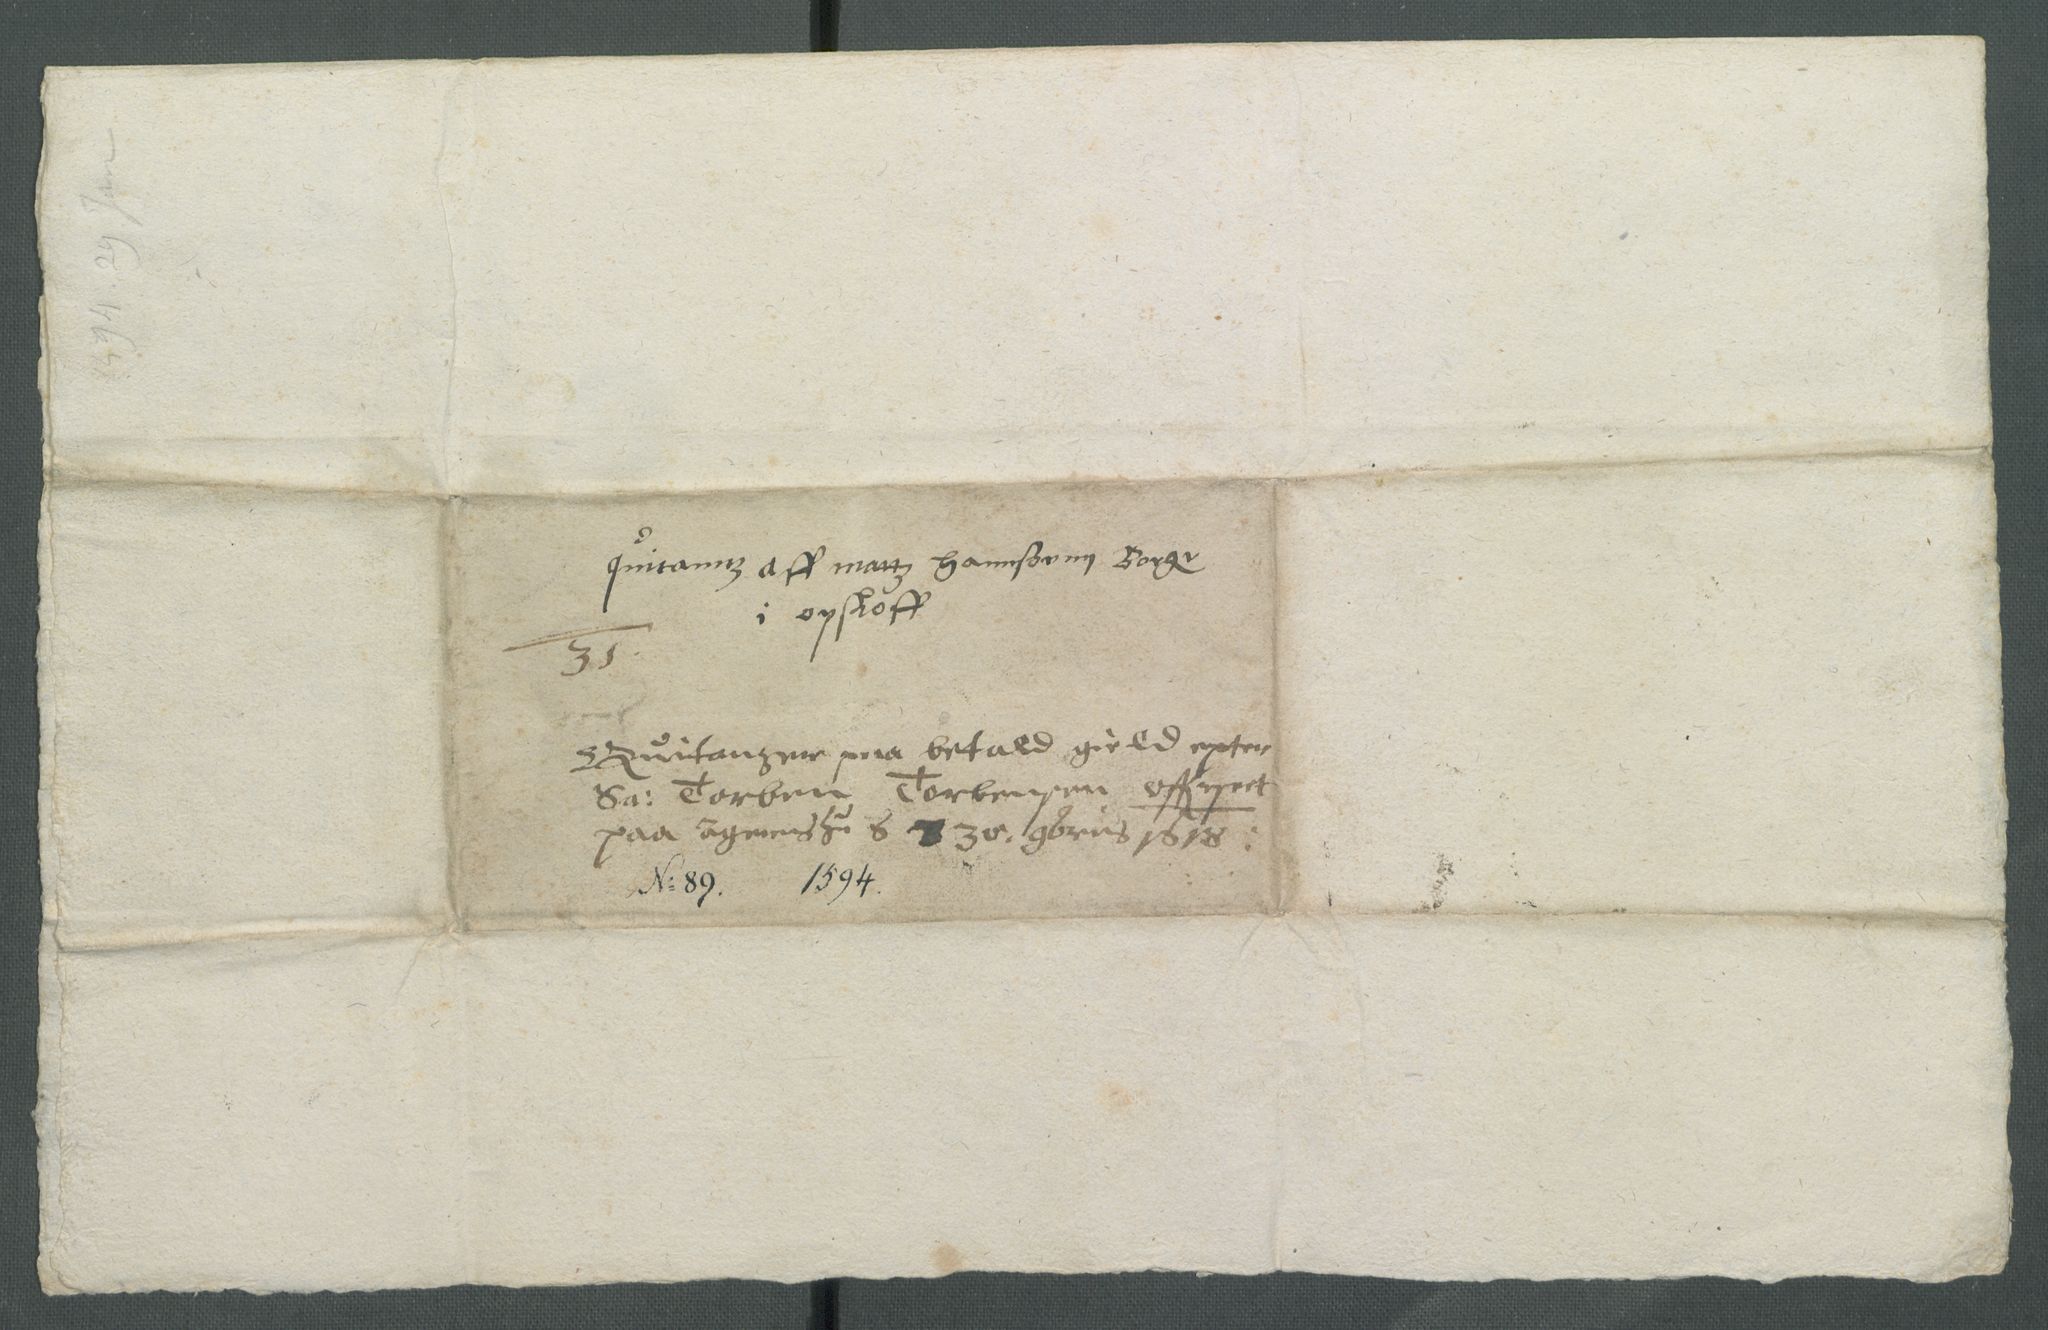 1594. 29 Jan
Quitantz aff matz hannsenn Borger
i opsloff
31.
Quitanzer paa betald gield epter
Sa: Torben Torbensen
paa Agerhus 30. 9bris 1618:
No: 89. 1594.